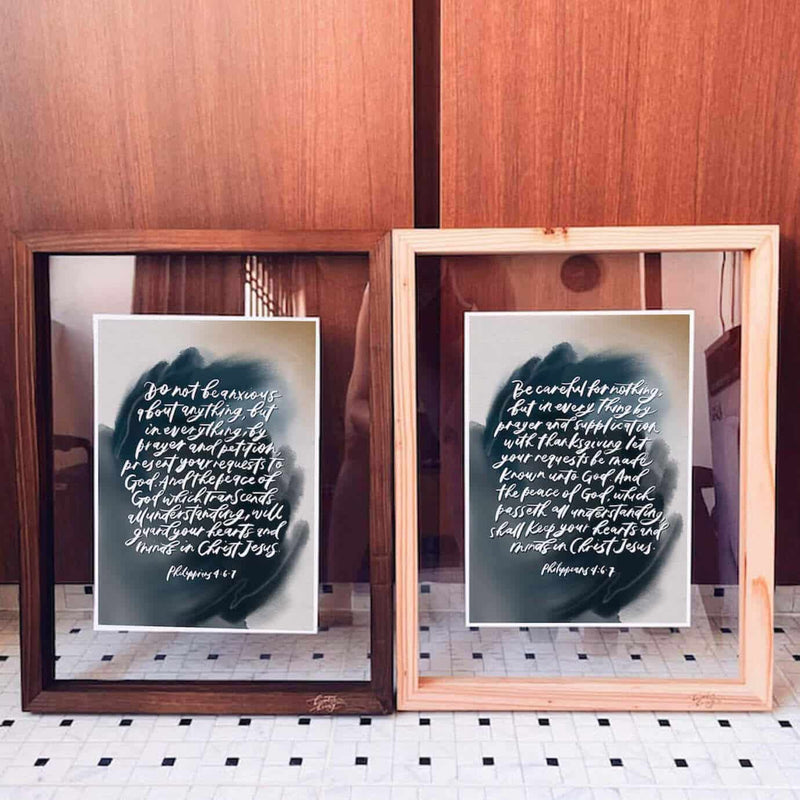 Do not be anxious
about anything, but
in everything, by
prayer and petition,
present your requests to
God. And the peace of
God which transcends
all understanding, will
guard your hearts and
minds in Christ Jesus
Philippians 4:6-7
Be careful for nothing,
but in every Thing by
prayer and supplication
with thanksgiving let
your requests be made
known unto God. And
the peace of God, which
passeth all understanding
shall keep your hearts and
minds in Christ Jesus.
Philippians 4:6-7